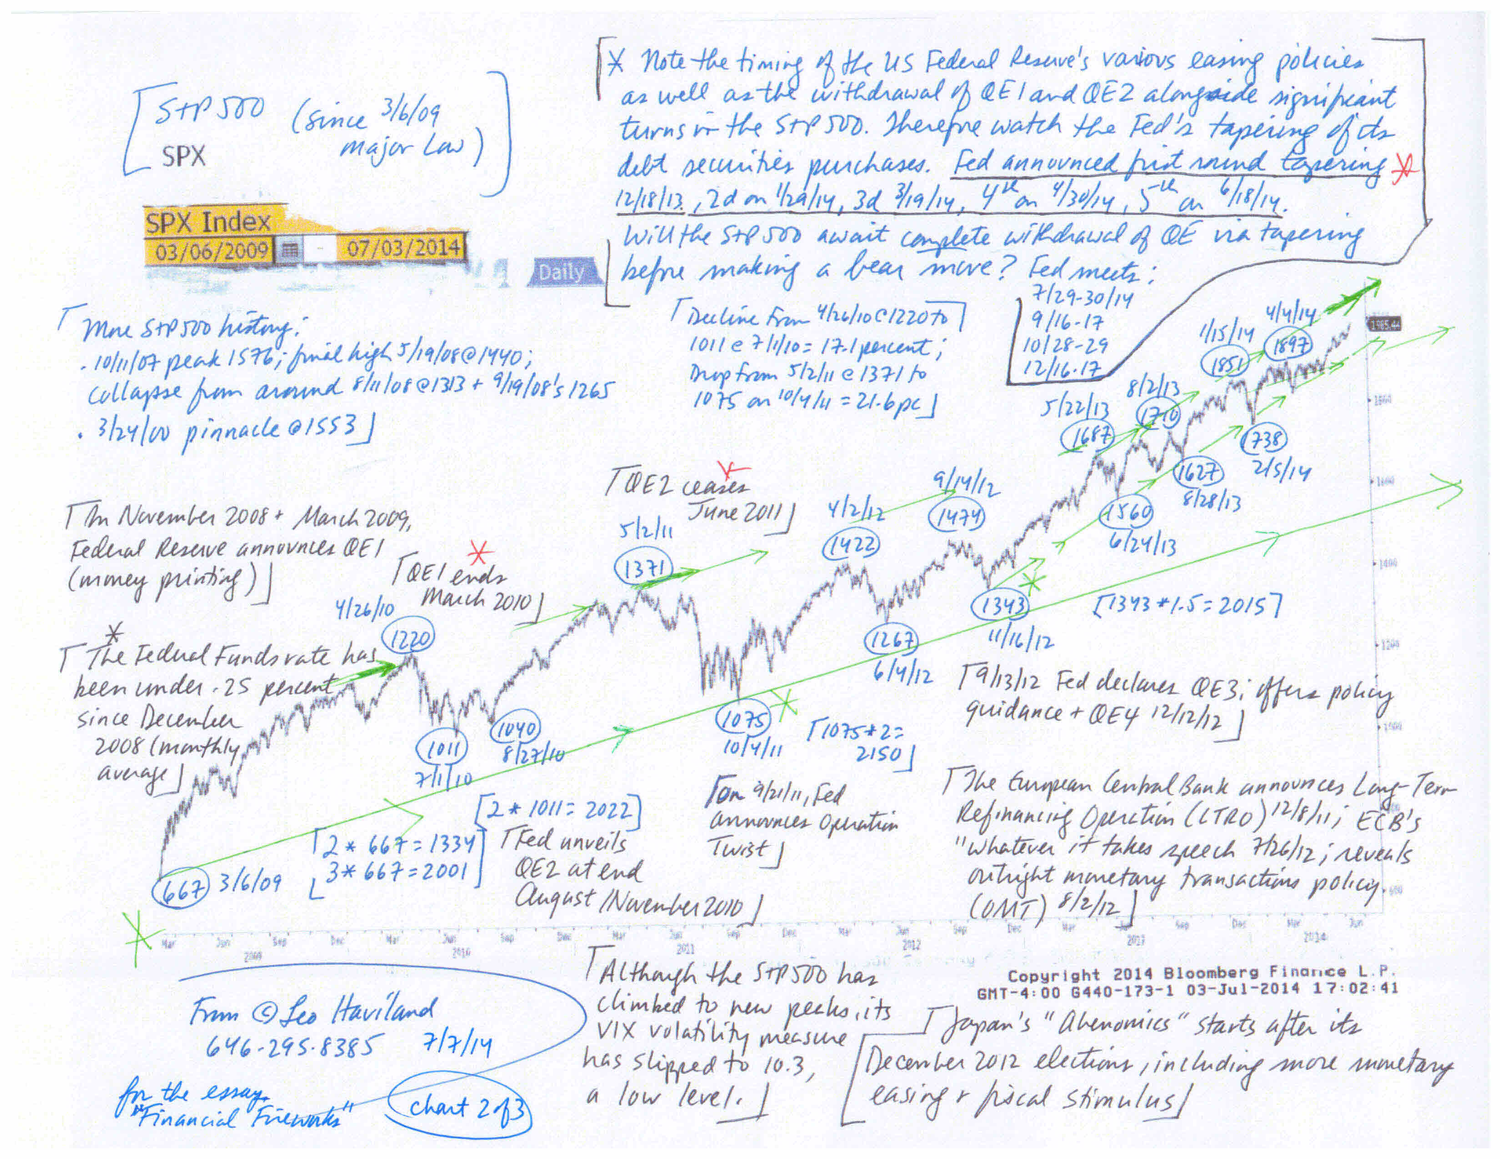 S+P 500 (since 3/6/09
major low)
SPX
SPX Index
03/06/2009 - 07/03/2014
Daily
* Note the timing of the US Federal Reserve's various easing policies
as well as the withdrawal of QE1 and QE2 alongside significant
turns in the S+P 500. Therefore watch the Fed's tapering of its
debt securities purchases. Fed announced first round tapering *
12/18/13, 2d on 1/29/14, 3d 3/19/14, 4th on 4/30/14, 5th on 6/18/14.
Will the S+P 500 await complete withdrawal of QE via tapering
before making a bear move? Fed meets:
7/29-30/14
9/16-17
10/28-29
12/16-17
More S+P 500 history:
. 10/11/07 peak 1576; final high 5/19/08@1440;
collapse from around 8/11/08@1313 + 9/19/08's 1265
. 3/24/00 pinnacle @1553
Decline from 4/26/10@1220 to
1011 @ 7/1/10 = 17.1 percent;
Drop from 5/2/11 @ 1371 to
1075 on 10/4/11 = 21.6 pc
1/15/14
1851
4/4/14
1897
1985.44
8/2/13
1710
5/22/13
1687
1738
2/5/14
1627
8/28/13
1560
6/24/13
1800
1600
1400
1200
1000
600
In November 2008 + March 2009,
Federal Reserve announces QE1
(money printing)
*
QE1 ends
March 2010
4/26/10
1220
QE2 ceases
June 2011
5/2/11
1371
4/2/12
1422
9/14/12
1474
1343
11/16/12
*
[1343*1.5=2015]
1267
6/4/12
*
The Federal Funds rate has
been under .25 percent
since December
2008 (monthly
average)
1011
7/1/10
1040
8/27/10
1075
10/4/11
*
[1075*2=
2150]
9/13/12 Fed declares QE3; offers policy
guidance + QE4 12/12/12
[2*1011=2022]
[2*667=1334
3*667=2001]
667 3/6/09
*
Fed unveils
QE2 at end
August/November 2010
On 9/21/11, Fed
announces Operation
Twist
The European Central Bank announces Long-Term
Refinancing Operation (LTRO) 12/8/11; ECB's
"whatever it takes speech 7/26/12; reveals
outright monetary transactions policy.
(OMT) 8/2/12
Mar Jun Sep Dec Mar Jun Sep Dec Mar Jun Sep Dec Mar Jun Sep Dec Mar Jun Sep Dec Mar Jun
2009 2010 2011 2012 2013 2014
Copyright 2014 Bloomberg Finance L.P.
GMT-4:00 G440-173-1 03-Jul-2014 17:02:41
From © Leo Haviland
646-295-8385 7/7/14
for the essay,
"Financial Fireworks"
chart 2 of 3
Although the S+P 500 has
climbed to new peaks, its
VIX volatility measure
has slipped to 10.3,
a low level.
Japan's "Abenomics" starts after its
December 2012 elections, including more monetary
easing + fiscal stimulus